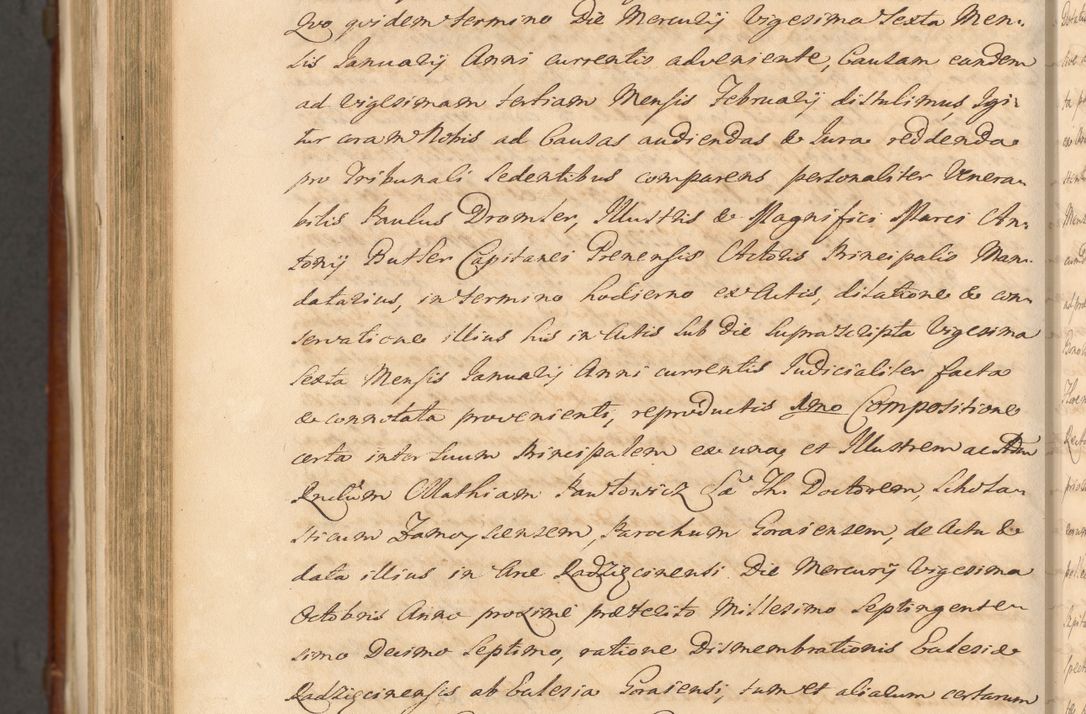 Qvo qvidem termino Die Mercurij Vigesima Sexta Men-
sis Januarij Anni currentis adveniente, Causam eandem
ad vigesimam tertiam Mensis Februarij distulimus, Igi-
tur coram Nobis ad Causas audiendas & Jura reddenda
pro Tribunali Sedentibus comparens personaliter Venera-
bilis Paulus Dromler, Illustris & Magnifici Marci An-
tonij Butler Capitanei Prenensis Actoris Principalis Man-
datarius, in termino hodierno ex Actis, dilatione & con-
servatione illius his in Actis sub die suprascripta Vigesima
Sexta Mensis Januarij Anni currentis Judicialiter facta
& connotata provenienti, reproductis Compositione
certa inter suum Principalem ex una, et Illustrem ac
Mathiam Pawłowicz Sa Th: Doctorem, Schola-
sticum Zamoyscensem, Parochum Goraiensem, de Actu &
data illius in Arce Radzięcinensi Die Mercurij Vigesima
Octobris Anno proximé præterito Millesimo Septingente-
simo Decimo Septimo, ratione Dismembrationis Ecclesiæ
Radzięcinensis ab Ecclesia Goraiensi, tum et aliarum certarum